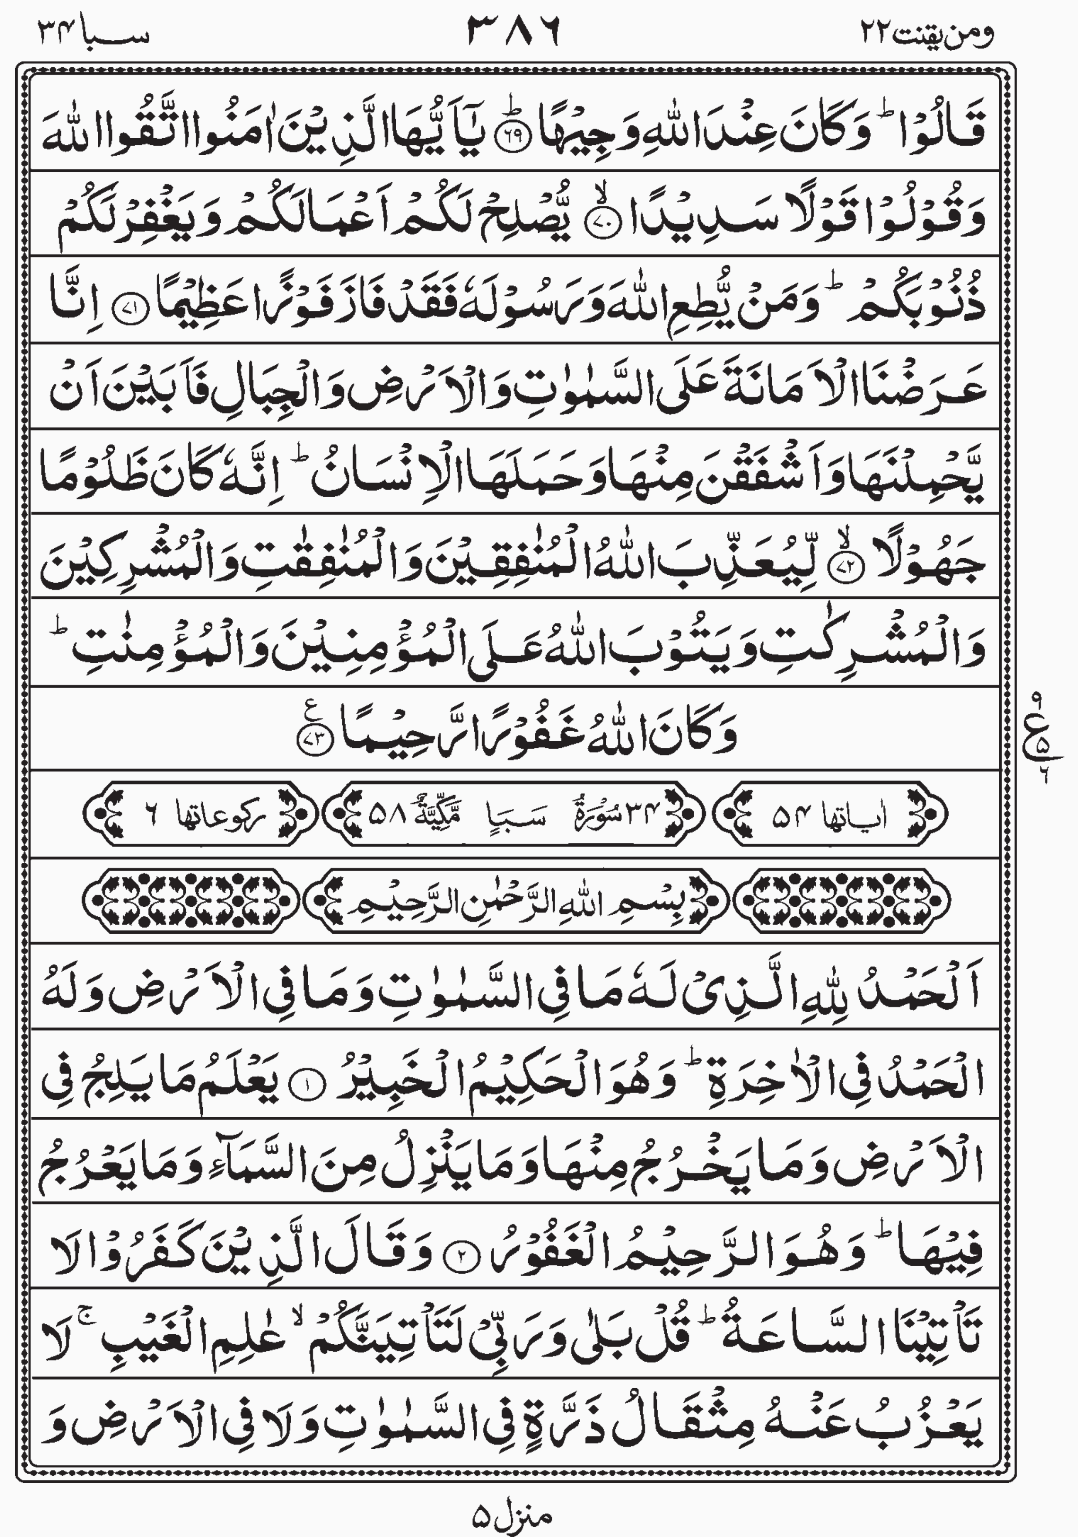 ومن یقنت ۲۲ ۳۸۶ سبا ۳۴
قَالُوْا ؕ وَكَانَ عِنْدَ اللّٰهِ وَجِیْهًا ؕ۶۹ یٰۤاَیُّهَا الَّذِیْنَ اٰمَنُوا اتَّقُوا اللّٰهَ
وَقُوْلُوْا قَوْلًا سَدِیْدًا ۙ۷۰ یُّصْلِحْ لَكُمْ اَعْمَالَكُمْ وَیَغْفِرْ لَكُمْ
ذُنُوْبَكُمْ ؕ وَمَنْ یُّطِعِ اللّٰهَ وَرَسُوْلَهٗ فَقَدْ فَازَ فَوْزًا عَظِیْمًا ۷۱ اِنَّا
عَرَضْنَا الْاَمَانَةَ عَلَی السَّمٰوٰتِ وَالْاَرْضِ وَالْجِبَالِ فَاَبَیْنَ اَنْ
یَّحْمِلْنَهَا وَاَشْفَقْنَ مِنْهَا وَحَمَلَهَا الْاِنْسَانُ ؕ اِنَّهٗ كَانَ ظَلُوْمًا
جَهُوْلًا ۙ۷۲ لِّیُعَذِّبَ اللّٰهُ الْمُنٰفِقِیْنَ وَالْمُنٰفِقٰتِ وَالْمُشْرِكِیْنَ
وَالْمُشْرِكٰتِ وَیَتُوْبَ اللّٰهُ عَلَی الْمُؤْمِنِیْنَ وَالْمُؤْمِنٰتِ ؕ
وَكَانَ اللّٰهُ غَفُوْرًا رَّحِیْمًا ۷۳ ع
۹ ع ۵ ۶
اٰیاتها ۵۴ ۳۴ سُوْرَةُ سَبَاٍ مَّكِّیَّةٌ ۵۸ ركوعاتها ۶
بِسْمِ اللّٰهِ الرَّحْمٰنِ الرَّحِیْمِ
اَلْحَمْدُ لِلّٰهِ الَّذِیْ لَهٗ مَا فِی السَّمٰوٰتِ وَمَا فِی الْاَرْضِ وَلَهُ
الْحَمْدُ فِی الْاٰخِرَةِ ؕ وَهُوَ الْحَكِیْمُ الْخَبِیْرُ ۱ یَعْلَمُ مَا یَلِجُ فِی
الْاَرْضِ وَمَا یَخْرُجُ مِنْهَا وَمَا یَنْزِلُ مِنَ السَّمَآءِ وَمَا یَعْرُجُ
فِیْهَا ؕ وَهُوَ الرَّحِیْمُ الْغَفُوْرُ ۲ وَقَالَ الَّذِیْنَ كَفَرُوْا لَا
تَاْتِیْنَا السَّاعَةُ ؕ قُلْ بَلٰی وَرَبِّیْ لَتَاْتِیَنَّكُمْ ۙ عٰلِمِ الْغَیْبِ ۚ لَا
یَعْزُبُ عَنْهُ مِثْقَالُ ذَرَّةٍ فِی السَّمٰوٰتِ وَلَا فِی الْاَرْضِ وَ
منزل ۵